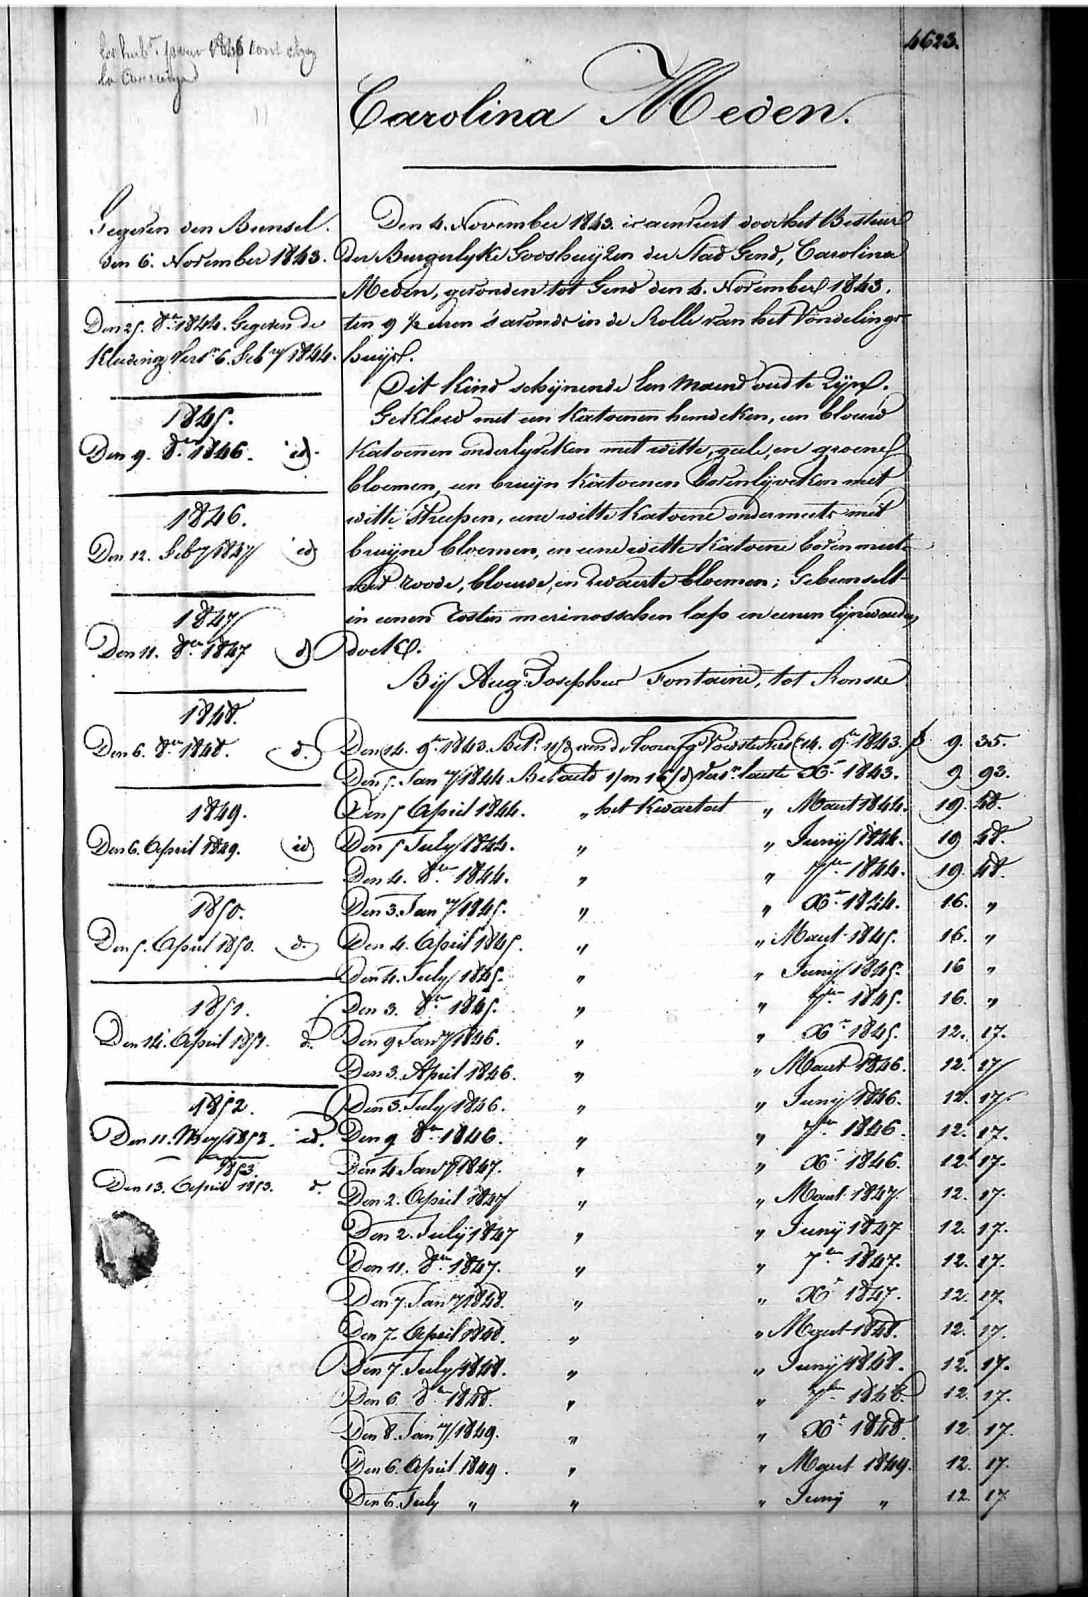 4623.
Les hab.ts pour 1846 sont chez
la Concierge
Carolina Meden.
Gegeven den Bunsel.
den 6. November 1843.
Den 25. 8.er 1844. Gegeven de
Kleeding vers.n 6. Feb.ry 1844.
1845.
Den 9. 8.er 1846. id.
1846.
Den 12. Feb.ry 1847 id
1847
Den 11. 8.er 1847 d
1848.
Den 6. 8.er 1848. d.
1849.
Den 6. April 1849. id
1850.
Den 5. April 1850. d.
1851.
Den 14. April 1851. d.
1852.
Den 11. Mey 1852. id.
1853.
Den 13. April 1853. d.
Den 4. November 1843. is aenveert door het Bestuer
der Burgerlyke Godshuyzen der Stad Gend, Carolina
Meden, gevonden tot Gend den 4. November 1843.
ten 9 ½ uren 's avonds in de Rolle van het Vondelings-
huys.
Dit kind schynende een maend oud te zyn.
Gekleed met een katoenen hemdeken, een blouw
katoenen onderlyfken met witte, geele, en groene
bloemen, een bruyn katoenen bovenlyveken met
witte streepen, eene witte katoene ondermuts met
bruyne bloemen, en eene witte katoene bovenmuts
met roode, blouwe, en zwarte bloemen; Gebunselt
in eenen merinosschen lap en eenen lynwaeden
doek.
By Aug. Josephus Fontaine, tot Ronsse
Den 14. 9.er 1843. Bet. 14. 9.er 1843. f 9. 35.
Den 5. Jan.ry 1844. Betaeld 1/m laeste X.er 1843. 9 93.
Den 5 April 1844. " het Kwartael " Maert 1844. 19. 48.
Den 5 July 1844. " " Juny 1844. 19 48.
Den 4. 8.er 1844. " " 7.er 1844. 19. 48.
Den 3. Jan.ry 1845. " " X.er 1844. 16. "
Den 4. April 1845. " " Maert 1845. 16. "
Den 4. July 1845. " " Juny 1845. 16 "
Den 3. 8.er 1845. " " 7.er 1845. 16. "
Den 9 Jan.ry 1846. " " X.er 1845. 12. 17.
Den 3. April 1846. " " Maert 1846. 12. 17
Den 3. July 1846. " " Juny 1846. 12. 17.
Den 9 8.er 1846. " " 7.er 1846. 12. 17.
Den 4 Jan.ry 1847. " " X.er 1846. 12. 17.
Den 2. April 1847 " " Maert 1847. 12. 17.
Den 2. July 1847 " " Juny 1847 12. 17.
Den 11. 8.er 1847. " " 7.er 1847. 12. 17.
Den 7. Jan.ry 1848. " " X.er 1847. 12. 17.
Den 7. April 1848. " " Maert 1848. 12. 17.
Den 7. July 1848. " " Juny 1848. 12. 17.
Den 6. 8.er 1848. " " 7.er 1848. 12. 17.
Den 8. Jan.ry 1849. " " X.er 1848. 12 17.
Den 6. April 1849. " " Maert 1849. 12. 17.
Den 6. July " " " Juny " 12. 17